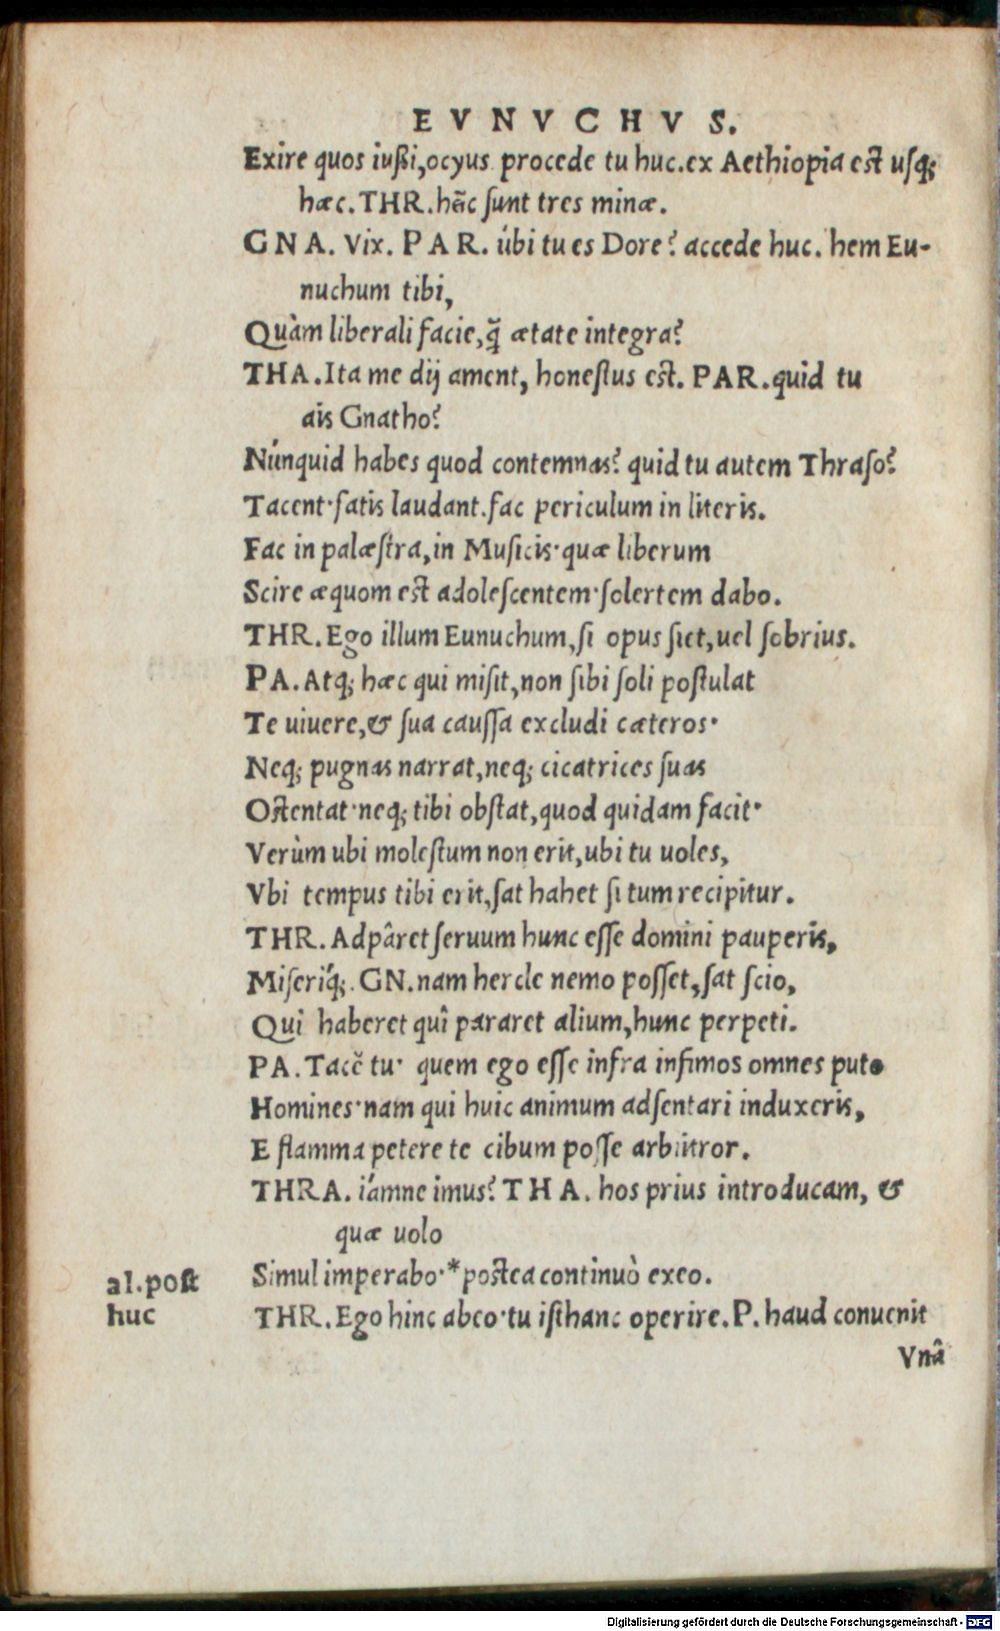 EVNVCHVS.
Exire quos iußi,ocyus procede tu huc.ex Aethiopia est uſq;
hæc.THR.hãc ſunt tres minæ.
GNA. Vix. PAR. úbi tu es Dore? accede huc. hem Eu-
nuchum tibi,
Quàm liberali facie,q̃ ætate integra?
THA.Ita me dij ament, honeſtus est. PAR.quid tu
ais Gnatho?
Núnquid habes quod contemnas? quid tu autem Thraſo?
Tacent·ſatis laudant.fac periculum in literis.
Fac in palæſtra,in Muſicis·quæ liberum
Scire æquom est adoleſcentem·ſolertem dabo.
THR.Ego illum Eunuchum,ſi opus ſiet,uel ſobrius.
PA.Atq; hæc qui miſit,non ſibi ſoli poſtulat
Te uiuere,& ſua cauſſa excludi cæteros·
Neq; pugnas narrat,neq; cicatrices ſuas
Oſtentat·neq; tibi obſtat,quod quidam facit·
Verùm ubi moleſtum non erit,ubi tu uoles,
Vbi tempus tibi erit,ſat hahet ſi tum recipitur.
THR. Adpâret ſeruum hunc eſſe domini pauperis,
Miſeriq́;. GN.nam hercle nemo poſſet,ſat ſcio,
Qui haberet quî pararet alium,hunc perpeti.
PA.Tacẽ tu· quem ego eſſe infra infimos omnes puto
Homines·nam qui huic animum adſentari induxeris,
E flamma petere te cibum poſſe arbitror.
THRA. iámne imus? THA. hos prius introducam, &
quæ uolo
Simul imperabo·*poſtea continuò exeo.
al.poſt
huc
THR.Ego hinc abeo·tu iſthanc operire.P. haud conuenit
Vnâ
Digitalisierung gefördert durch die Deutsche Forschungsgemeinschaft - DFG